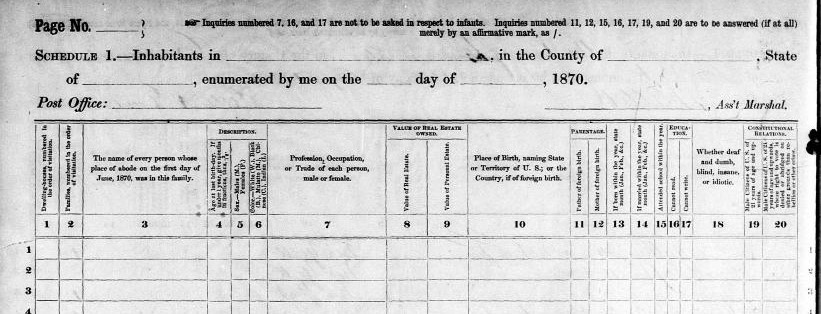 Page No.
Inquiries numbered 7, 16, and 17 are not to be asked in respect to infants. Inquiries numbered 11, 12, 15, 16, 17, 19, and 20 are to be answered (if at all)
merely by an affirmative mark, as /.
SCHEDULE 1.—Inhabitants in , in the County of , State
of , enumerated by me on the day of , 1870.
Post Office: , Ass't Marshal.
Dwelling-houses, numbered in the order of visitation.
Families, numbered in the order of visitation.
The name of every person whose
place of abode on the first day of
June, 1870, was in this family.
DESCRIPTION.
Age at last birth-day. If under 1 year, give months in fractions, thus,
Sex.—Males (M.), Females (F.)
Color.—White (W.), Black (B.), Mulatto (M.), Chinese (C.), Indian (I.)
Profession, Occupation,
or Trade of each person,
male or female.
VALUE OF REAL ESTATE
OWNED.
Value of Real Estate.
Value of Personal Estate.
Place of Birth, naming State
or Territory of U. S.; or the
Country, if of foreign birth.
PARENTAGE.
Father of foreign birth.
Mother of foreign birth.
If born within the year, state month (Jan., Feb., &c.)
If married within the year, state month (Jan., Feb., &c.)
Attended school within the year.
EDUCA-
TION.
Cannot read.
Cannot write.
Whether deaf
and dumb,
blind, insane,
or idiotic.
CONSTITUTIONAL
RELATIONS.
Male Citizens of U. S. of 21 years of age and upwards.
Male Citizens of U. S. of
1 2 3 4 5 6 7 8 9 10 11 12 13 14 15 16 17 18 19 20
1 1
2 2
3 3
4